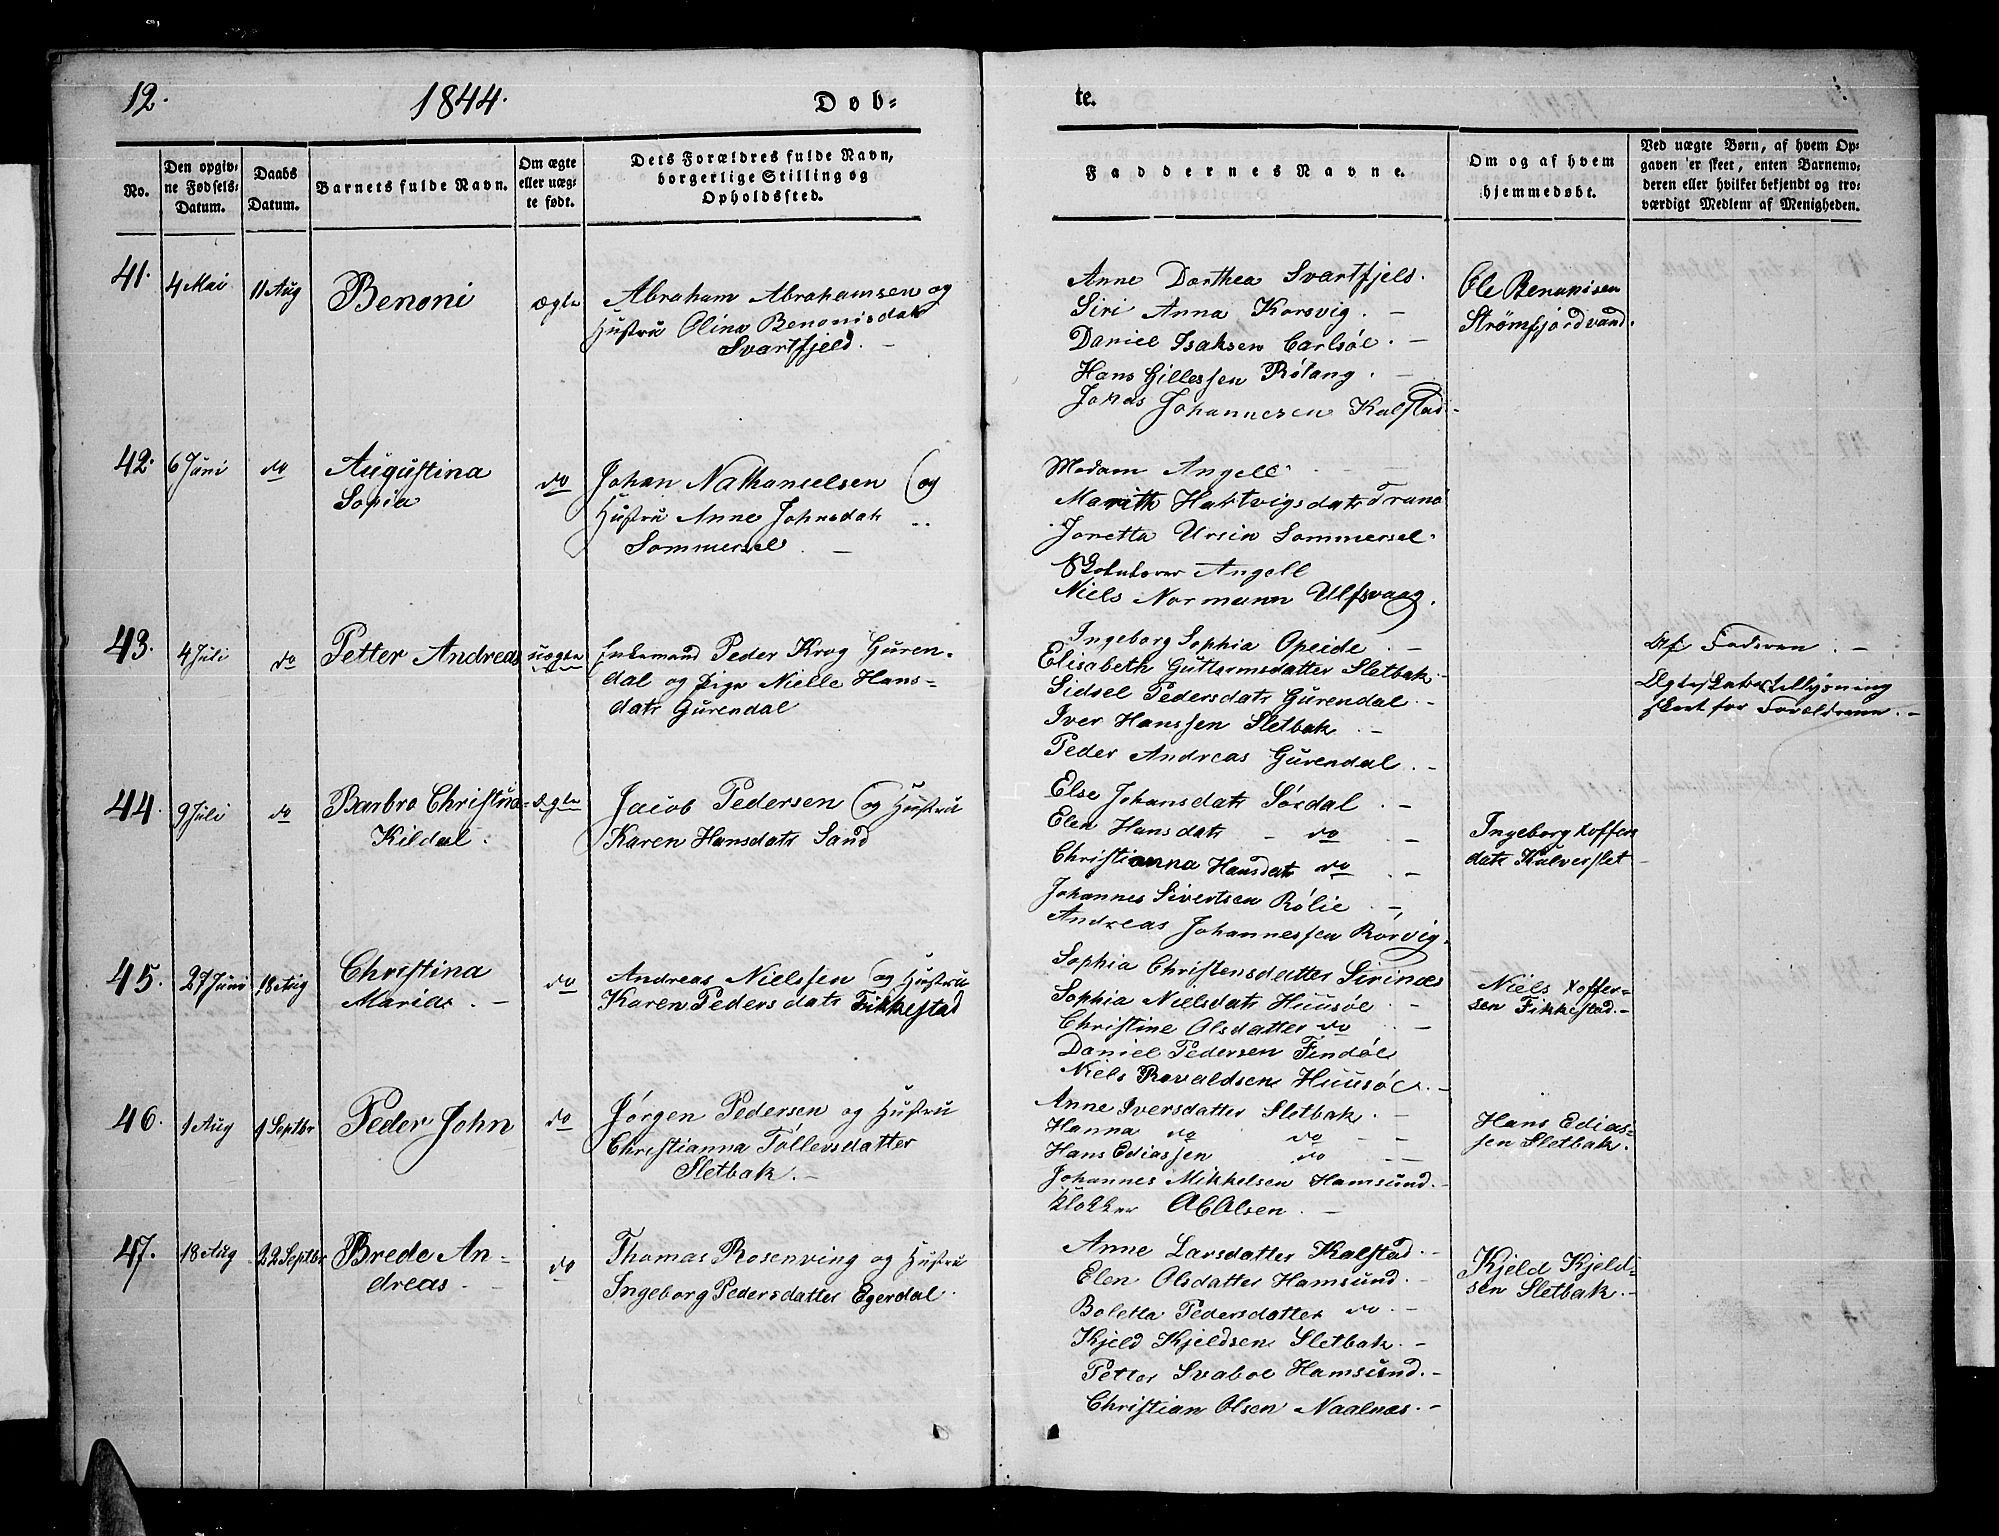 12. 1844. Døb= te.
No.
Den opgiv-
ne Fødsels-
Datum.
Daabs
Datum.
Barnets fulde Navn.
Om ægte
eller uæg-
te født.
Dets Forældres fulde Navn,
borgerlige Stilling og
Opholdssted.
Faddernes Navne.
Om og af hvem
hjemmedøbt.
Ved uægte Børn, af hvem Op-
gaven er skeet, enten Barnemo-
deren eller hvilket bekjendt og tro-
værdigt Medlem af Menigheden.
41. 4 Mai 11 Aug Benoni ægte
Abraham Abrahamsen og
Hustru Olina Benonisdatr
Svartfjeld. -
Anne Dorthea Svartfjeld.
Siri Anna Korsvig. -
Daniel Isaksen Carlsöe. -
Hans Gillessen Rötang. -
Jonas Johannesen Kalstad -
Ole Benonisen
Strømfjordvand.
42. 6 Juni do Augustina
Sopia
do
Johan Nathanielsen og
Hustru Anne Johnsdatr
Sommersel. -
Madam Angell
Marith Hartvigsdatr Tranö
Joretta Ursin Sommersel.
Angell
Niels Normann Ulfsvaag.
43. 4 Juli do Petter Andreas uægte
Enkemand Peder Krog Guren-
dal og Pige Nille Hans-
datr Gurendal
Ingeborg Sophia Opeide. -
Elisabeth Guttormsdatter Sletbak.
Sidsel Pedersdatr Gurendal. -
Iver Hanssen Sletbak. -
Peder Andreas Gurendal. -
Af Faderen. -
Ægteskabstillysning
skeet for Forældrene. -
44. 9 Juli do Barbro Christina
Kildal.
ægte
Jacob Pedersen og Hustru
Karen Hansdatr Sand
Else Johansdatr Sördal. -
Elen Hansdatr - do -
Christianna Hansdatr do. -
Johannes Sivertsen Rölie. -
Andreas Johannessen Rörvig.
Ingeborg Xoffers
datr Kalverslet
45. 27 Juni 18 Aug Christina
Maria. -
do
Andreas Nielssen og Hustru
Karen Pedersdatr Fikkestad
Sophia Christensdatter Sirines
Sophia Nielsdatr Huusöe -
Christine Olsdatter do -
Daniel Pedersen Findöe
Niels Rovaldsen Huusöe. -
Niels Xoffer-
sen Fikkestad. -
46. 1 Aug 1 Septbr Peder John do
Jörgen Pedersen og Hustru
Christianna Tollersdatter
Sletbak. -
Anne Iversdatter Sletbak. -
Hanna do do - -
Hans Ediassen do - -
Johannes Mikkelsen Hamsund. -
Klokker Olsen. -
Hans Edias-
sen Sletbak.
47. 18 Aug 22 Septbr Brede An-
dreas. -
do
Thomas Rosenving og Hustru
Ingeborg Pedersdatter Egerdal.
Anne Larsdatter Kalstad. -
Elen Olsdatter Hamsund. -
Boletta Pedersdatter do. -
Kjeld Kjeldsen Sletbak. -
Petter Svaboe Hamsund. -
Christian Olsen Naalnæs. -
Kjeld Kjeld-
sen Sletbak. -